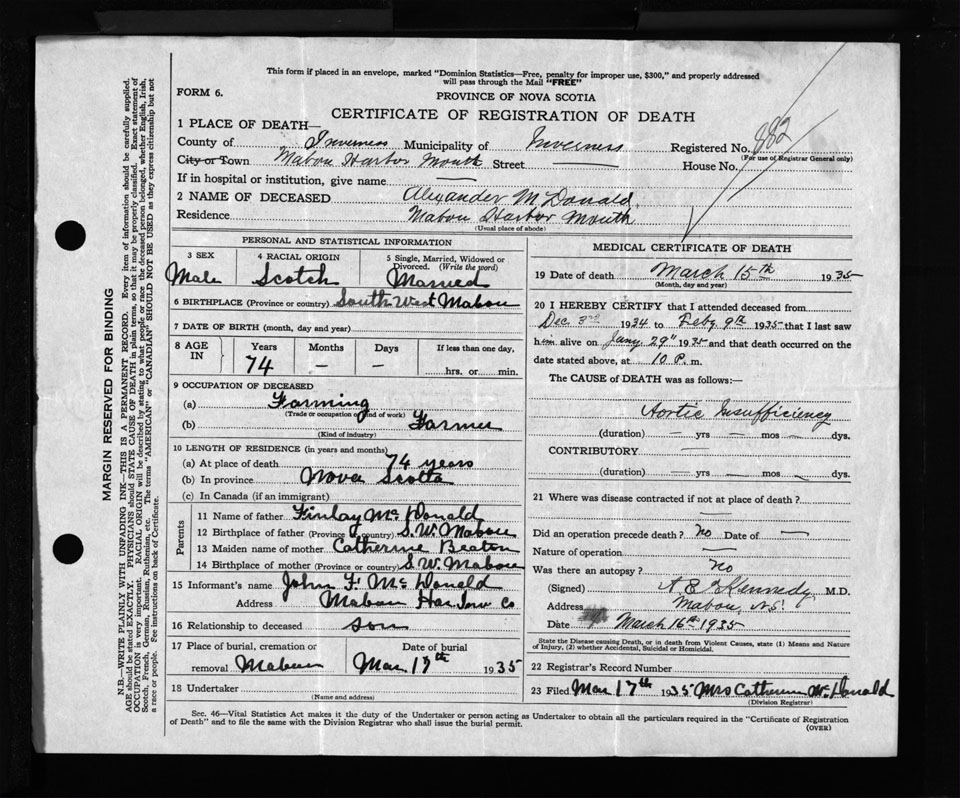 This form if placed in an envelope, marked "Dominion Statistics—Free, penalty for improper use, $300," and properly addressed
will pass through the Mail "FREE"
FORM 6.
PROVINCE OF NOVA SCOTIA
CERTIFICATE OF REGISTRATION OF DEATH
882
1 PLACE OF DEATH—
County of Inverness Municipality of Inverness Registered No.
(For use of Registrar General only)
City or Town Mabou Harbor Mouth Street — House No.
If in hospital or institution, give name —
2 NAME OF DECEASED Alexander McDonald
Residence Mabou Harbor Mouth
(Usual place of abode)
PERSONAL AND STATISTICAL INFORMATION
3 SEX
Male
4 RACIAL ORIGIN
Scotch
5 Single, Married, Widowed or
Divorced. (Write the word)
Married
6 BIRTHPLACE (Province or country) South West Mabou
7 DATE OF BIRTH (month, day and year)
8 AGE IN
Years Months Days If less than one day,
74 — — hrs. or min.
9 OCCUPATION OF DECEASED
(a) Farming
(Trade or occupation or kind of work)
(b) Farmer
(Kind of industry)
10 LENGTH OF RESIDENCE (in years and months)
(a) At place of death 74 years
(b) In province Nova Scotia
(c) In Canada (if an immigrant)
Parents
11 Name of father Finlay McDonald
12 Birthplace of father (Province or country) S.W. Mabou
13 Maiden name of mother Catherine Beaton
14 Birthplace of mother (Province or country) S.W. Mabou
15 Informant's name John F. McDonald
Address Mabou Har Inv Co
16 Relationship to deceased son
17 Place of burial, cremation or
removal Mabou
Date of burial
Mar 17th 1935
18 Undertaker
(Name and address)
MEDICAL CERTIFICATE OF DEATH
19 Date of death March 15th 1935
(Month, day and year)
20 I HEREBY CERTIFY that I attended deceased from
Dec 3rd 1934 to Feby 9th 1935 that I last saw
him alive on Jany 29" 1935 and that death occurred on the
date stated above, at 10 P. m.
The CAUSE of DEATH was as follows:—
Aortic Insufficiency
(duration) — yrs — mos — dys.
CONTRIBUTORY —
(duration) — yrs — mos — dys.
21 Where was disease contracted if not at place of death?
—
Did an operation precede death? no Date of —
Nature of operation —
Was there an autopsy? no
(Signed) Kennedy, M.D.
Address Mabou, N.S.
Date March 16th 1935
State the Disease causing Death, or in death from Violent Causes, state (1) Means and Nature
of Injury, (2) whether Accidental, Suicidal or Homicidal.
22 Registrar's Record Number
23 Filed Mar 17th 1935 Mrs Catherine McDonald
(Division Registrar)
Sec. 46—Vital Statistics Act makes it the duty of the Undertaker or person acting as Undertaker to obtain all the particulars required in the "Certificate of Registration
of Death" and to file the same with the Division Registrar who shall issue the burial permit.
(OVER)
MARGIN RESERVED FOR BINDING
N.B.—WRITE PLAINLY WITH UNFADING INK—THIS IS A PERMANENT RECORD. Every item of information should be carefully supplied.
AGE should be stated EXACTLY. PHYSICIANS should STATE CAUSE OF DEATH in plain terms, so that it may be properly classified. Exact statement of
OCCUPATION is very important. RACIAL ORIGIN will be described by stating to what people or race the deceased person belonged, whether English, Irish,
Scotch, French, German, Russian, Ruthenian, etc. The terms "AMERICAN" or "CANADIAN" SHOULD NOT BE USED as they express citizenship but not
a race or people. See instructions on back of Certificate.